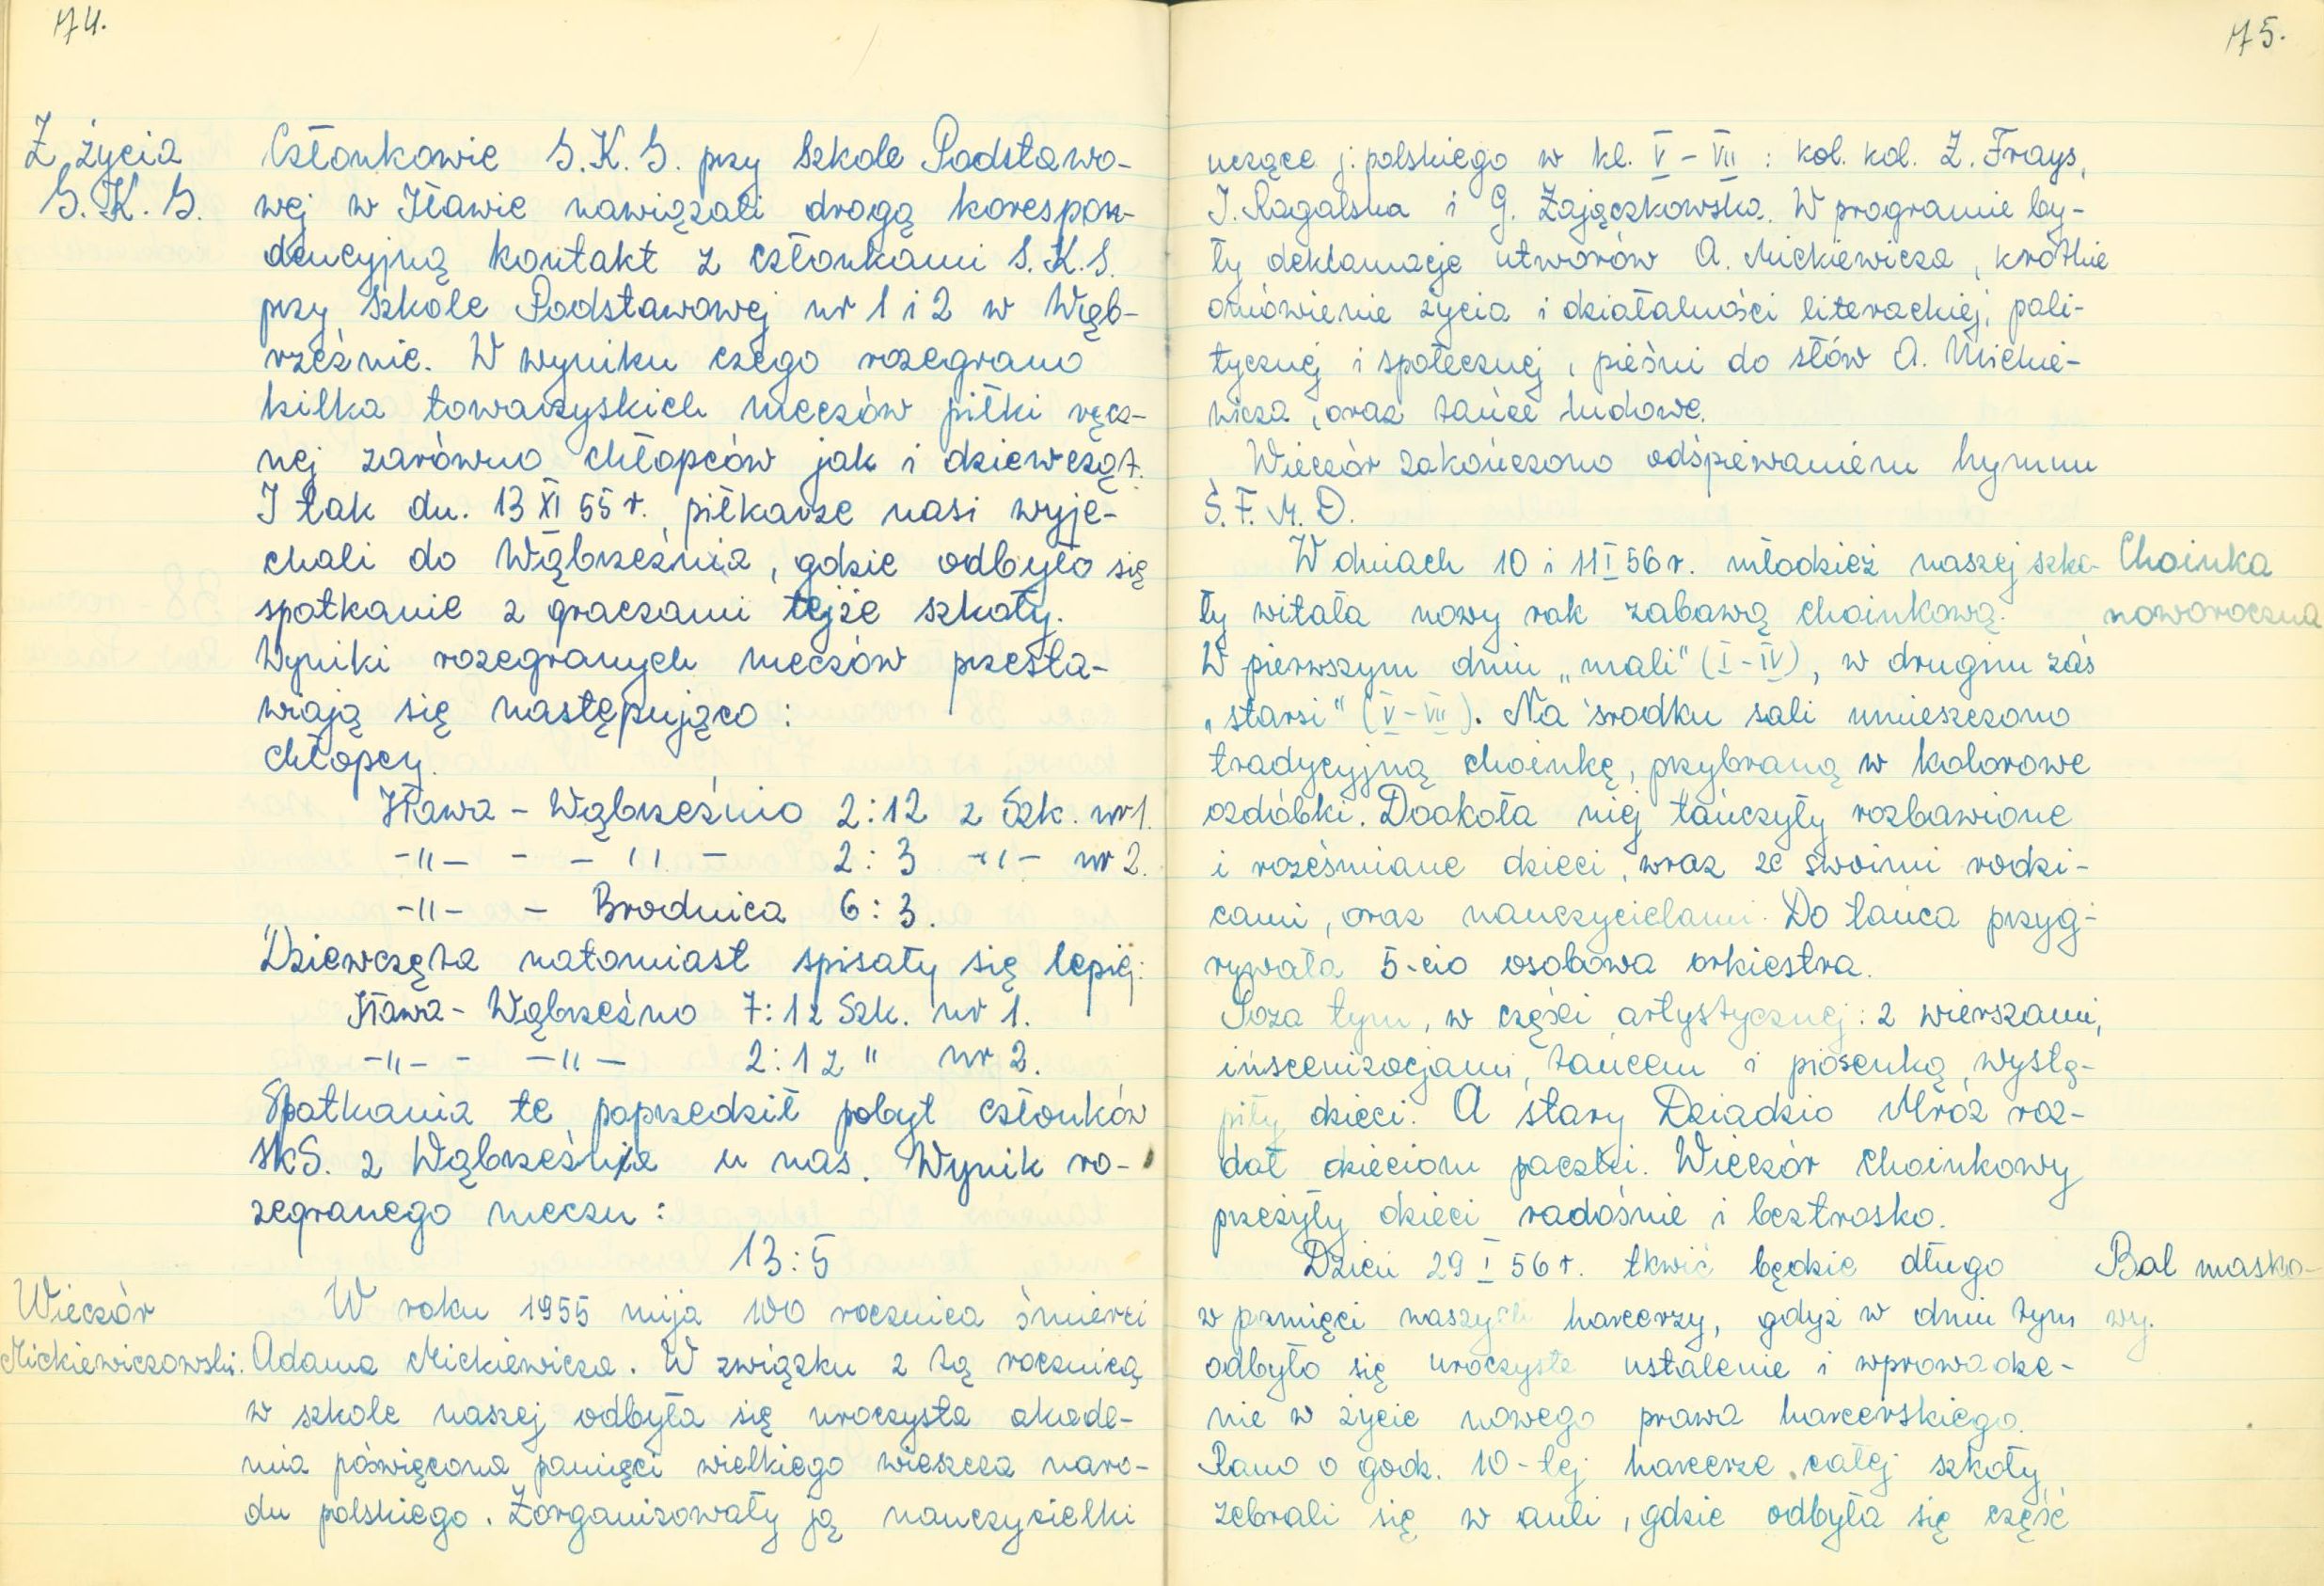 74.
Z życia
S.K.S.
Członkowie S.K.S. przy Szkole Podstawo-
wej w Iławie nawiązali drogą korespon-
dencyjną kontakt z członkami S.K.S.
przy Szkole Podstawowej nr 1 i 2 w Wąb-
rzeźnie. W wyniku czego rozegrano
kilka towarzyskich meczów piłki ręcz-
nej zarówno chłopców jak i dziewcząt.
I tak dn. 13 XI 55 r. piłkarze nasi wyje-
chali do Wąbrzeźnia, gdzie odbyło się
spotkanie z graczami tejże szkoły.
Wyniki rozegranych meczów przesta-
wiają się następująco:
Chłopcy.
Iława - Wąbrzeźnio 2:12 z Szk. nr 1.
-"- - -"- 2:3 -"- nr 2.
-"- - Brodnica 6:3.
Dziewczęta natomiast spisały się lepiej:
Iława - Wąbrzeźno 7:1 z Szk. nr 1.
-"- - -"- 2:1 z " nr 2.
Spotkania te poprzedził pobyt członków
SKS. z Wąbrzeźnie u nas. Wynik ro-
zegranego meczu:
13:5
Wieczór
Mickiewiczowski.
W roku 1955 mija 100 rocznica śmierci
Adama Mickiewicza. W związku z tą rocznicą
w szkole naszej odbyła się uroczysta akade-
mia poświęcona pamięci wielkiego wieszcza naro-
du polskiego. Zorganizowały ją nauczycielki
75.
uczące j. polskiego w kl. V - VII: kol. kol. Z. Frays,
I. Rogalska i G. Zajączkowska. W programie by-
ły deklamacje utworów A. Mickiewicza, krótkie
omówienie życia i działalności literackiej, poli-
tycznej i społecznej, pieśni do słów A. Mickie-
wicza, oraz tańce ludowe.
Wieczór zakończono odśpiewaniem hymnu
Ś.F.M.D.
W dniach 10 i 11 I 56 r. młodzież naszej szko-
Choinka
noworoczna
ły witała nowy rok zabawą choinkową.
W pierwszym dniu „mali" (I - IV), w drugim zaś
„starsi" (V - VII). Na środku sali umieszczono
tradycyjną choinkę, przybraną w kolorowe
ozdóbki. Dookoła niej tańczyły rozbawione
i roześmiane dzieci, wraz ze swoimi rodzi-
cami, oraz nauczycielami. Do tańca przyg-
rywała 5-cio osobowa orkiestra.
Poza tym, w części artystycznej: z wierszami,
inscenizacjami, tańcem i piosenką, wystą-
piły dzieci. A stary Dziadzio Mróz roz-
dał dzieciom paczki. Wieczór choinkowy
przeżyły dzieci radośnie i beztrosko.
Dzień 29 I 56 r. tkwić będzie długo
Bal masko-
wy.
w pamięci naszych harcerzy, gdyż w dniu tym
odbyło się uroczyste ustalenie i wprowadze-
nie w życie nowego prawa harcerskiego.
Rano o godz. 10-tej harcerze całej szkoły
zebrali się w auli, gdzie odbyła się część